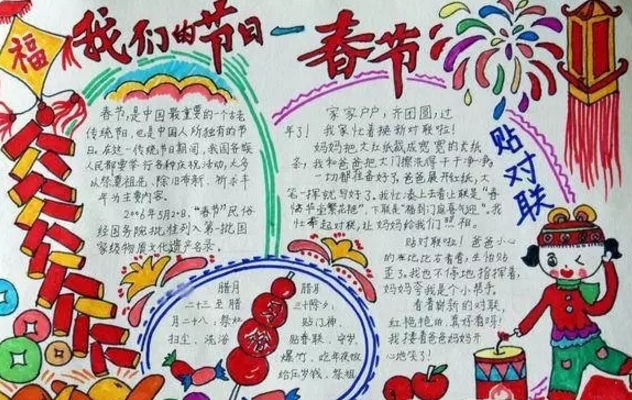 福
我们的节日一春节
春节,是中国最重要的一个古老
传统节日,也是中国人所独有的节
日。在这一传统节日期间,我国各族
人民都要举行各种庆祝活动,大多
以祭奠祖先、除旧布新、祈求丰
年为主要内容。
2006年5月20日,“春节”民俗
经国务院批准列入第一批国
家级物质文化遗产名录。
家家户户,齐团圆,过
年了!我家忙着换新对联啦!
妈妈把大红纸裁成宽宽的大纸
我和爸爸把大门擦洗得干干净净。
一切都准备好了,爸爸展开红纸,大
笔一挥就写好了。我忙凑上去看上联是“春
佳节 繁花艳”,下联是“福到门庭喜气迎”。我
忙 起对联,让妈妈给我们
贴对联啦!爸爸小心
看看,生怕贴
歪了。我也不停地指挥着,
妈妈夸我是个小帮手。
看着崭新的对联,
红艳艳的,真好看呀!
我 着爸爸妈妈开
心地笑了!
贴对联
腊月
二十三至腊
月二十八,祭灶
扫尘、洗浴
腊月
三十除夕,
贴门神、
贴春联、守岁、
爆竹、吃年夜饭
给压岁钱、祭祖